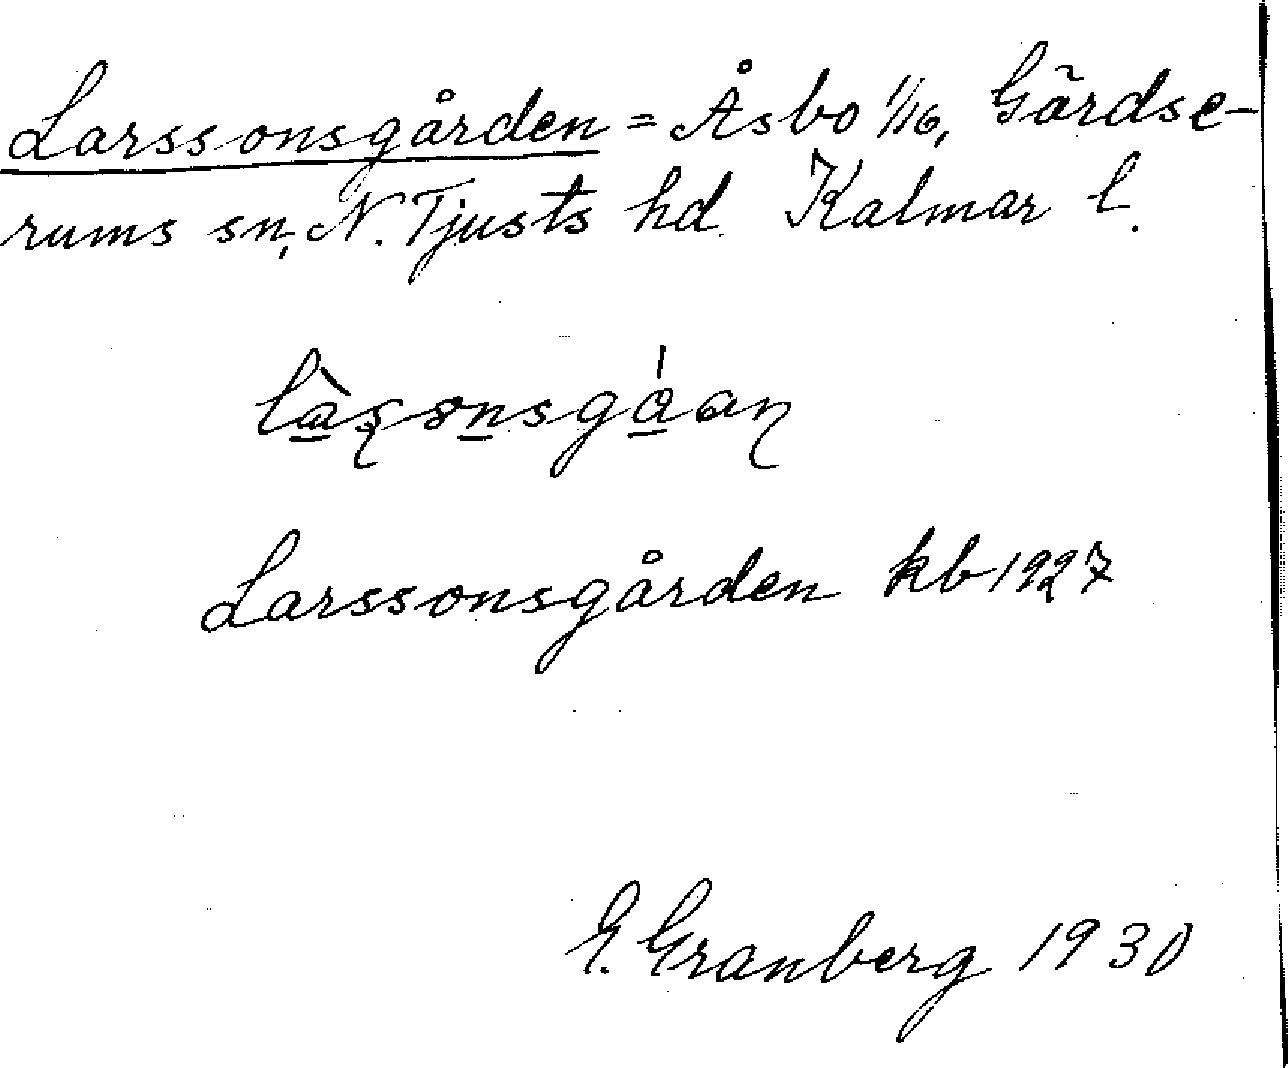 Larssonsgården = Åsbo 1/16, Gärdse-
rums sn, N. Tjusts hd Kalmar l.
làʂonsgáaɳ
Larssonsgården kb 1927
E. Granberg 1930